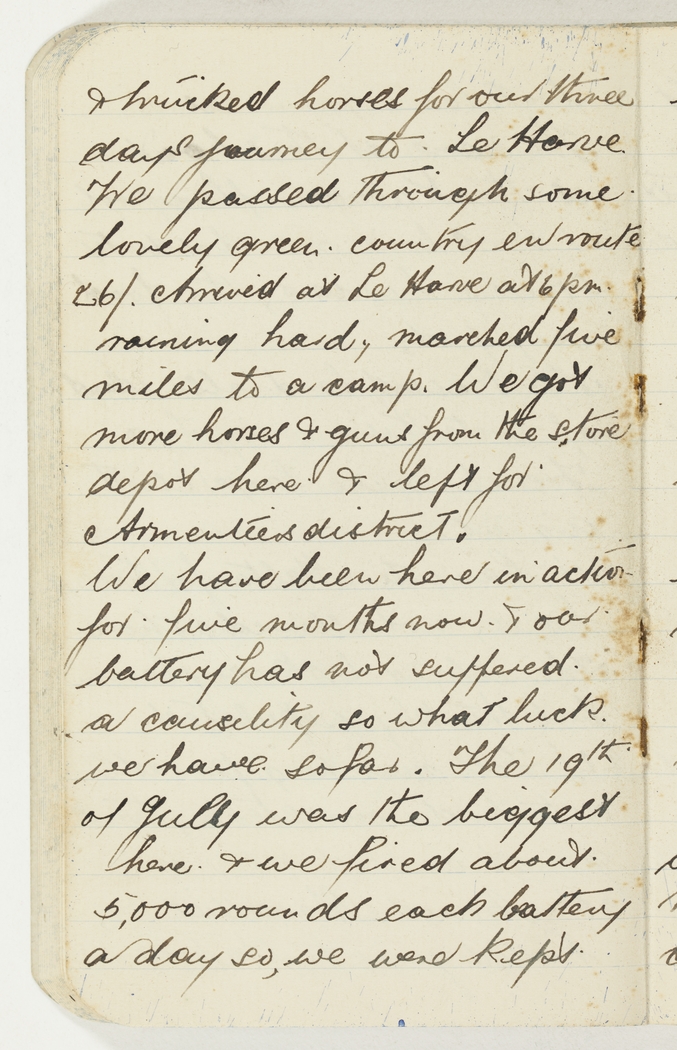 & trucked horses for our three
days journey to Le Harve
We passed through some
lovely green country en route
26/. Arrived at Le Harve at 6 pm
raining hard, marched five
miles to a camp. We got
more horses & guns from the store
depot here & left for
Armentiers district.
We have been here in action
for five months now & our
battery has not suffered
a causility so what luck
we have so far. The 19th
of Jully was the biggest
here & we fired about
5,000 rounds each battery
a day so, we were kept